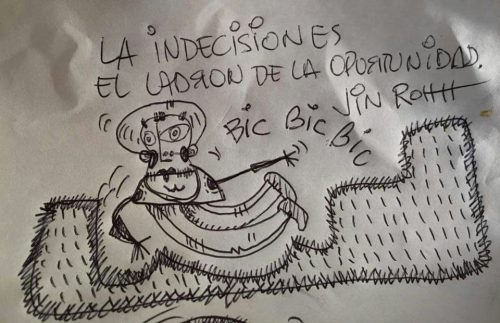 LA INDECISION ES
EL LADRON DE LA OPORTUNIDAD.
JIN ROHH
BIC BIC BIC